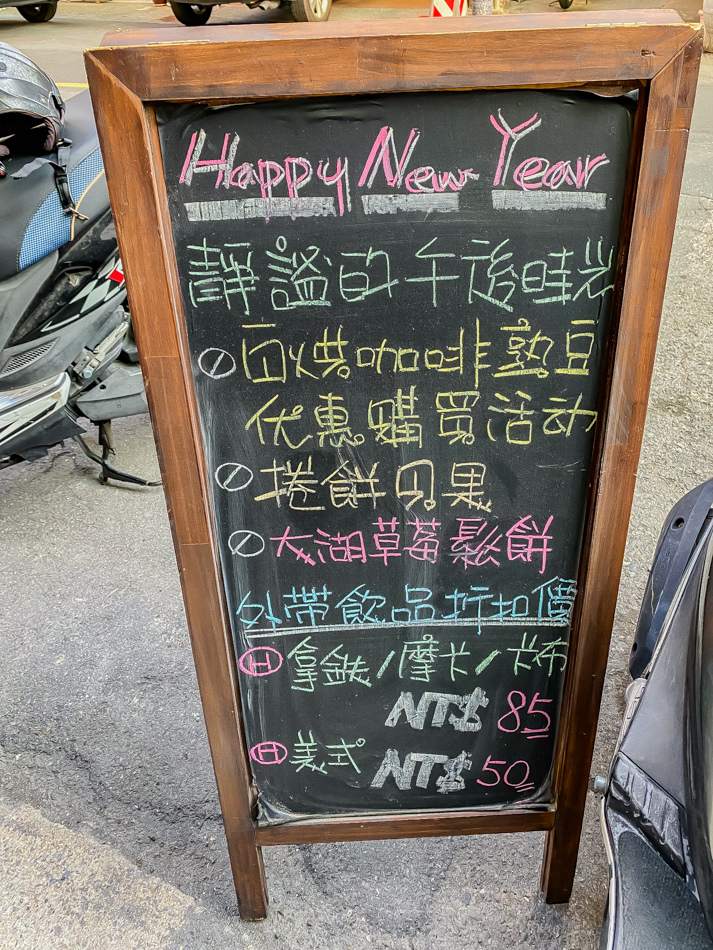 Happy New Year
靜謐的午後時光
自烘咖啡熟豆
优惠購買活动
捲餅貝果
大湖草莓鬆餅
外帶飲品折扣價
Ⓗ 拿鉄/摩卡/卡布
NT$ 85
Ⓗ 美式 NT$ 50